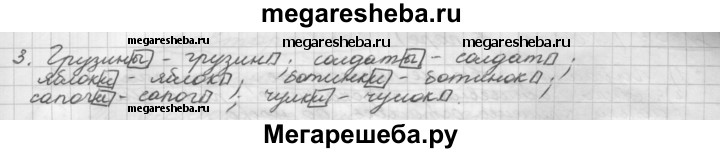 megaresheba.ru
3. Грузины - грузин; солдаты - солдат;
яблоки - яблок; ботинки - ботинок;
сапоги - сапог; чулки - чулок.
megaresheba.ru
megaresheba.ru
megaresheba.ru
megaresheba.ru
Мегарешеба.ру